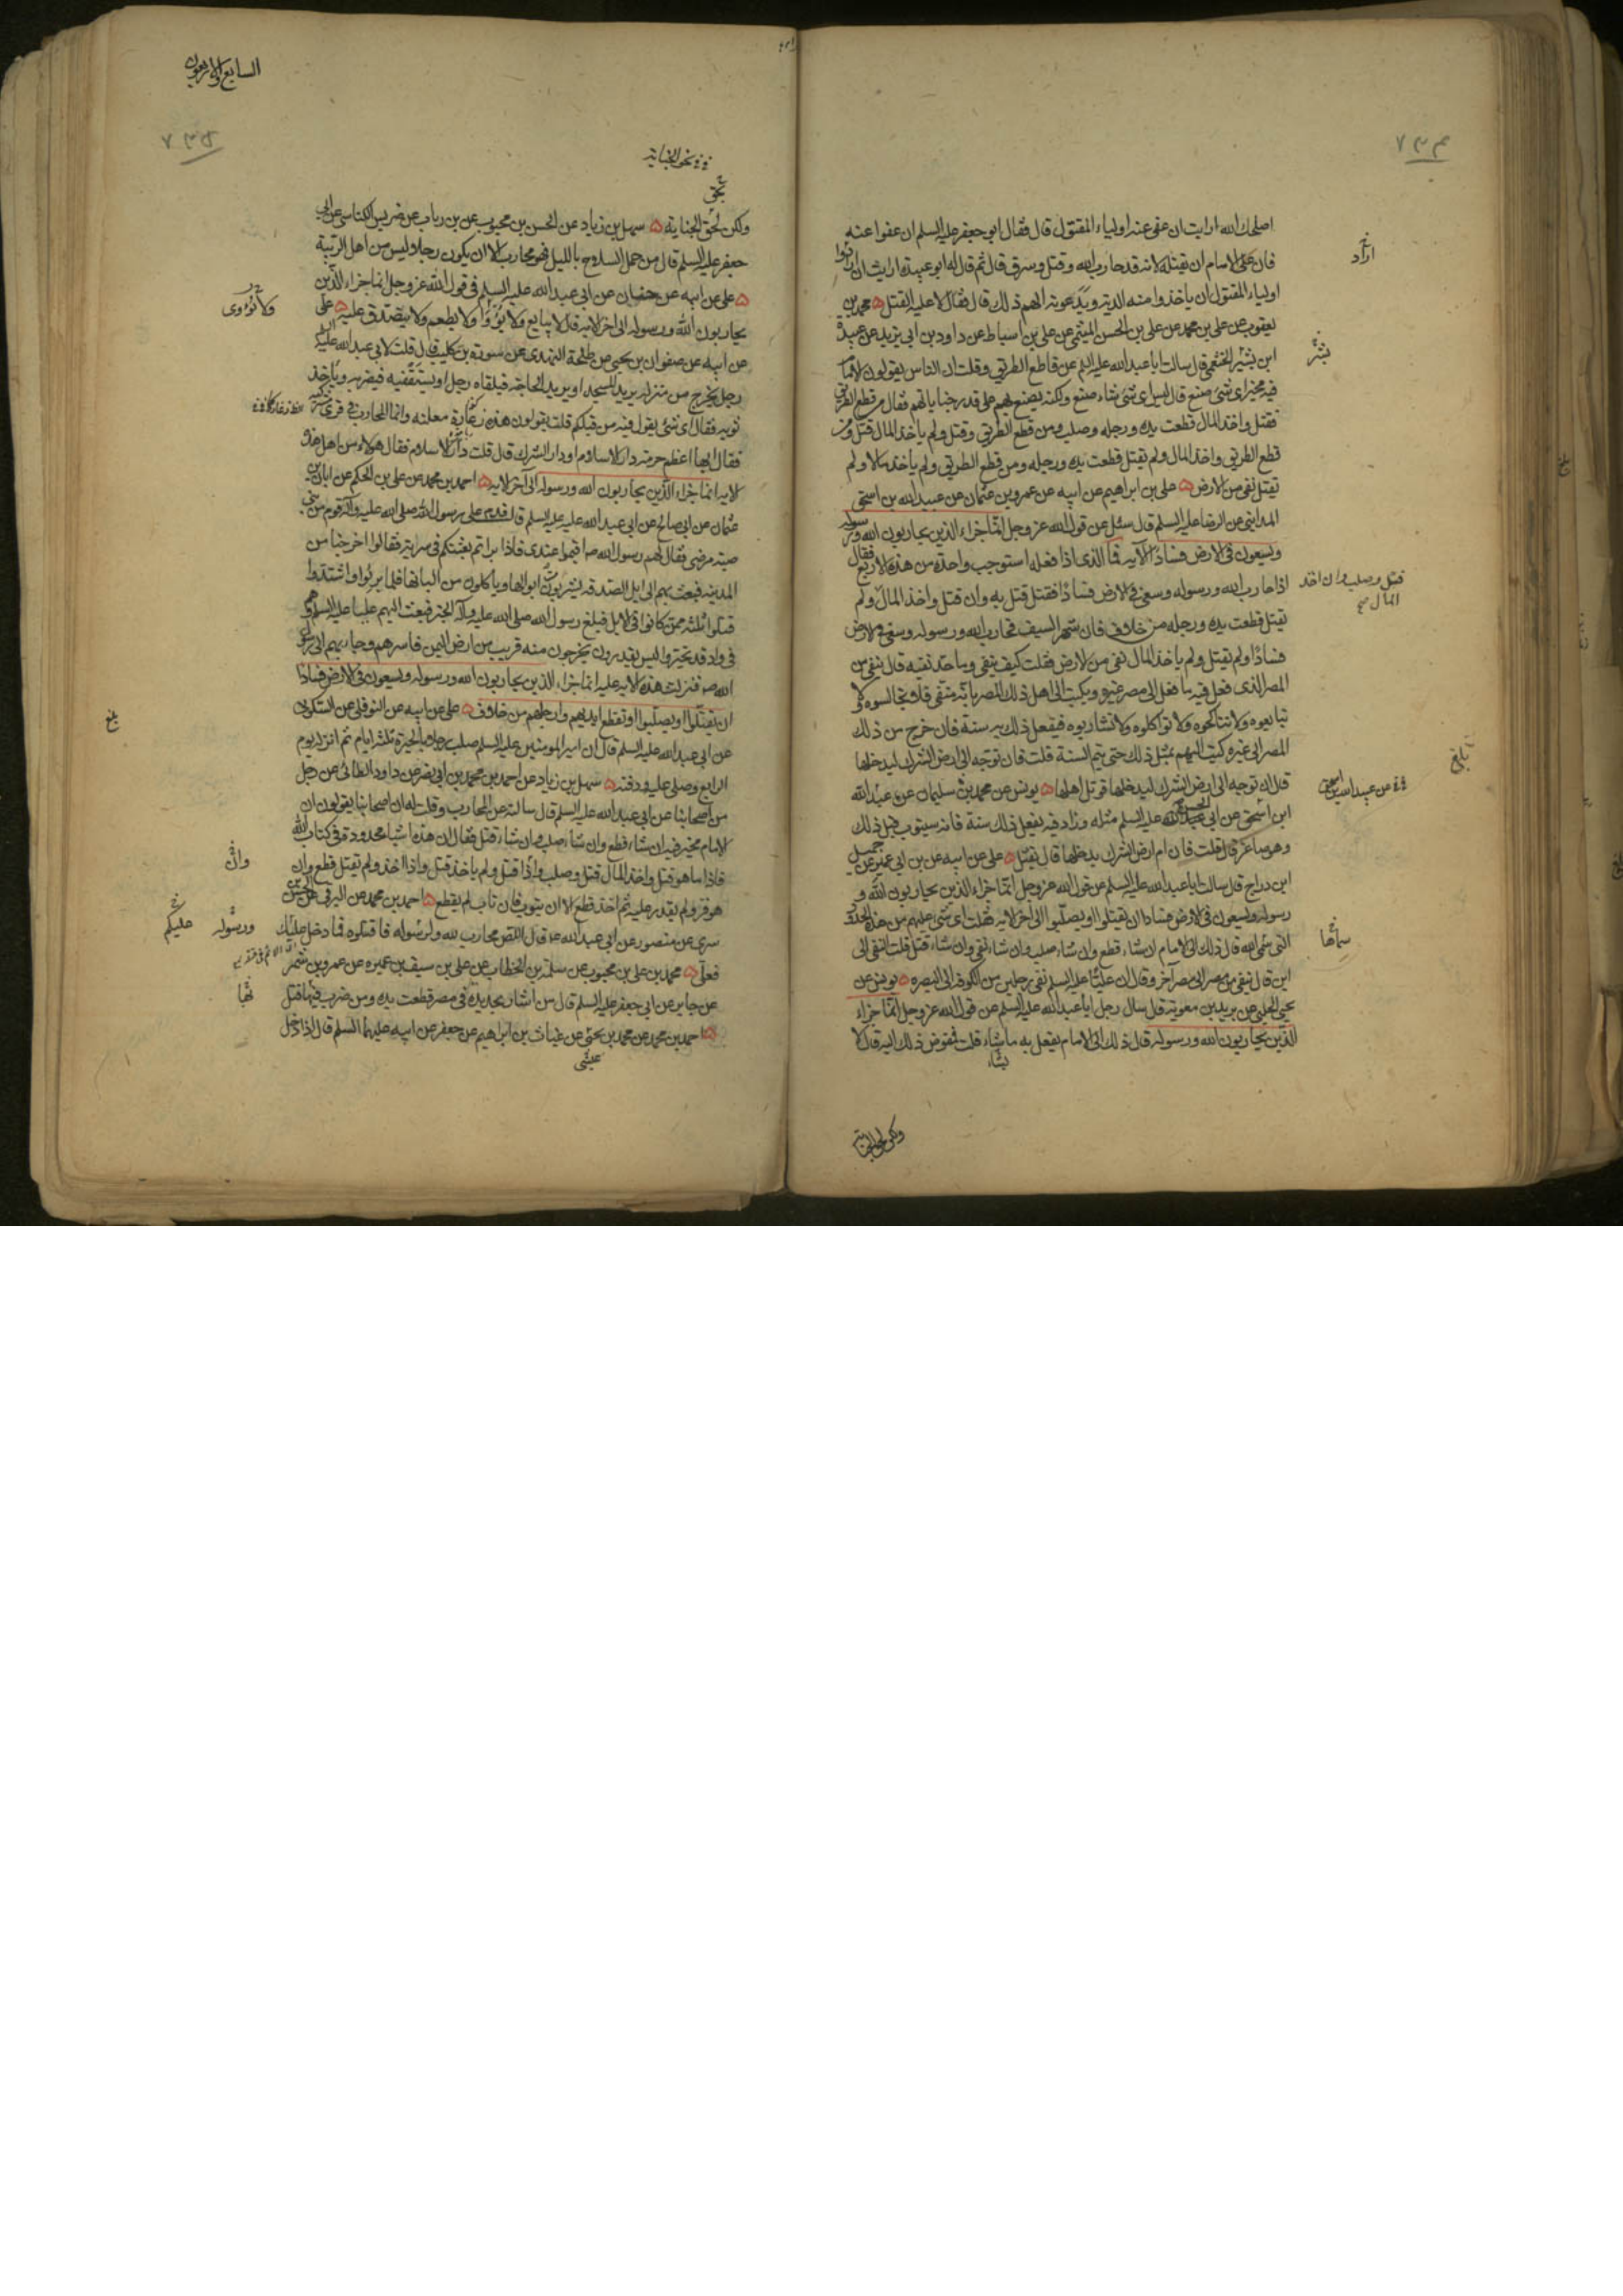 اصلحك الله ارايت ان عفى عنه اولياء المقتول قال فقال ابو جعفر عليه السلم ان عفوا عنه
فان على الامام ان يقتله لانه قد حارب الله وقتل وسرق قال ثم قال له ابو عبيدة ارايت ان ارادوا
اولياء المقتول ان ياخذوا منه الدية ويدعونه الهم ذلك قال فقال لا عليه القتل ه محمد بن
يعقوب عن علي بن محمد عن علي بن الحسن الميثمى عن علي بن اسباط عن داود بن ابي يزيد عن عبيدة
ابن بشير الخثعمى قال سالت ابا عبد الله عليه السلم عن قاطع الطريق وقلت ان الناس يقولون الامام
فيه مخير اى شئ صنع قال ليس اى شئ شاء صنع ولكنه يصنع بهم على قدر جناياتهم فقال من قطع الطريق
فقتل واخذ المال قطعت يده ورجله وصلب ومن قطع الطريق وقتل ولم ياخذ المال قتل ومن
قطع الطريق واخذ المال ولم يقتل قطعت يده ورجله ومن قطع الطريق ولم ياخذ مالا ولم
يقتل نفى من الارض ه علي بن ابراهيم عن ابيه عن عمرو بن عثمان عن عبيد الله بن اسحق
المداينى عن الرضا عليه السلم قال سئل عن قول الله عز وجل انما جزاء الذين يحاربون الله ورسوله
ويسعون فى الارض فسادا الآيه فما الذى اذا فعله استوجب واحدة من هذه الاربع فقال
اذا حارب الله ورسوله وسعى فى الارض فسادا فقتل قتل به وان قتل واخذ المال ولم
يقتل قطعت يده ورجله من خلاف فان شهر السيف فحارب الله ورسوله وسعى فى الارض
فسادا ولم يقتل ولم ياخذ المال نفى من الارض فقلت كيف ينفى وما حد نفيه قال ينفى من
المصر الذى فعل فيه ما فعل الى مصر غيره ويكتب الى اهل ذلك المصر بانه منفى فلا تجالسوه ولا
تبايعوه ولا تناكحوه ولا تواكلوه ولا تشاربوه فيفعل ذلك به سنة فان خرج من ذلك
المصر الى غيره كتب اليهم بمثل ذلك حتى يتم السنة قلت فان توجه الى ارض الشرك ليدخلها
قال ان توجه الى ارض الشرك ليدخلها قوتل اهلها ه يونس عن محمد بن سليمان عن عبد الله
ابن اسحق عن ابى الحسن عليه السلم مثله وزاد فيه يفعل ذلك سنة فانه سيتوب قبل ذلك
وهو صاغر قال قلت فان ام ارض الشرك يدخلها قال يقتل ه على عن ابيه عن بن ابى عمير عن جميل
ابن دراج قال سالت ابا عبد الله عليه السلم عن قول الله عز وجل انما جزاء الذين يحاربون الله و
رسوله ويسعون فى الارض فسادا ان يقتلوا او يصلبوا الى اخر الايه فقلت اى شئ عليهم من هذه الحدود
التى سمى الله قال ذلك الى الامام ان شاء قطع وان شاء صلب وان شاء نفى وان شاء قتل قلت النفى الى
اين قال ينفى من مصر الى مصر آخر وقال ان عليا عليه السلم نفى رجلين من الكوفه الى البصره ه يونس عن
يحيى الحلبى عن بريد بن معوية قال سال رجل ابا عبد الله عليه السلم عن قول الله عز وجل انما جزاء
الذين يحاربون الله ورسوله قال ذلك الى الامام يفعل به ما يشاء قلت فمفوض ذلك اليه قال لا
يشاء
اراد
بشر
قتل وصلب وان اخذ
المال صح
عن عبيد الله بن اسحق
سماها
بلغ
السابع والاربعون
نحو الجناية
بحق
ولكن لحق الجناية ه سهل بن زياد عن الحسن بن محبوب عن بن رباب عن ضريس الكناسى عن ابى
جعفر عليه السلم قال من حمل السلاح بالليل فهو محارب الا ان يكون رجلا وليس من اهل الريبة
ه على عن ابيه عن حنان عن ابى عبد الله عليه السلم فى قول الله عز وجل انما جزاء الذين
يحاربون الله ورسوله الى اخر الايه قال لا يبايع ولا يؤوا ولا يطعم ولا يتصدق عليه ه على
عن ابيه عن صفوان بن يحيى عن طلحة النهدى عن سورة بن كليب قال قلت لابى عبد الله عليه السلم
رجل يخرج من منزله يريد المسجد او يريد الحاجة فيلقاه رجل او يستقفيه فيضربه وياخذ
ثوبه فقال اى شئ يقول فيه من قبلكم قلت يقولون هذه زعارة معلنه وانما المحارب فى قرى
فقال ايها اعظم حرمة دار الاسلام او دار الشرك قال قلت دار الاسلام فقال هؤلاء من اهل هذه
الايه انما جزاء الذين يحاربون الله ورسوله الى آخر الايه ه احمد بن محمد عن علي بن الحكم عن ابان بن
عثمان عن ابى صالح عن ابى عبد الله عليه السلم قال قدم على رسول الله صلى الله عليه وآله قوم من بنى
ضبة مرضى فقال لهم رسول الله ص اقيموا عندى فاذا براتم بعثتكم فى سرية فقالوا اخرجنا من
المدينه فبعث بهم الى ابل الصدقه يشربون ابوالها وياكلون من البانها فلما برئوا واشتدوا
قتلوا ثلثه ممن كانوا فى الابل فبلغ رسول الله صلى الله عليه وآله الخبر فبعث اليهم عليا عليه السلم وهم
فى واد قد تحيروا ليس يقدرون يخرجون منه قريب من ارض اليمن فاسرهم وجاء بهم الى رسول
الله ص فنزلت هذه الايه عليه انما جزاء الذين يحاربون الله ورسوله ويسعون فى الارض فسادا
ان يقتلوا او يصلبوا او تقطع ايديهم وارجلهم من خلاف ه على عن ابيه عن النوفلى عن السكونى
عن ابى عبد الله عليه السلم قال ان امير المومنين عليه السلم صلب رجلا بالحيرة ثلثه ايام ثم انزله يوم
الرابع وصلى عليه ودفنه ه سهل بن زياد عن احمد بن محمد بن ابى نصر عن داود الطائى عن رجل
من اصحابنا عن ابى عبد الله عليه السلم قال سالته عن المحارب وقلت له ان اصحابنا يقولون ان
الامام مخير فيه ان شاء قطع وان شاء صلب وان شاء قتل فقال لا ان هذه اشياء محدودة فى كتاب الله
فاذا ما هو قتل واخذ المال قتل وصلب واذا قتل ولم ياخذ قتل واذا اخذ ولم يقتل قطع وان
هو فر ولم يقدر عليه ثم اخذ قطع الا ان يتوب فان تاب لم يقطع ه احمد بن محمد عن البرقى عن الحسن بن
سرى عن منصور عن ابى عبد الله ع قال اللص محارب لله ولرسوله فاقتلوه فما دخل عليك
فعلى ه محمد بن علي بن محبوب عن سلمة بن الخطاب عن علي بن سيف بن عميره عن عمرو بن شمر
عن جابر عن ابى جعفر عليه السلم قال من اشار بحديدة فى مصر قطعت يده ومن ضرب فيها قتل
ه احمد بن محمد عن محمد بن يحيى عن غياث بن ابراهيم عن جعفر عن ابيه عليهما السلم قال اذا دخل
ولا تؤوى
وان
ورسوله
عليكم
بها
بلغ